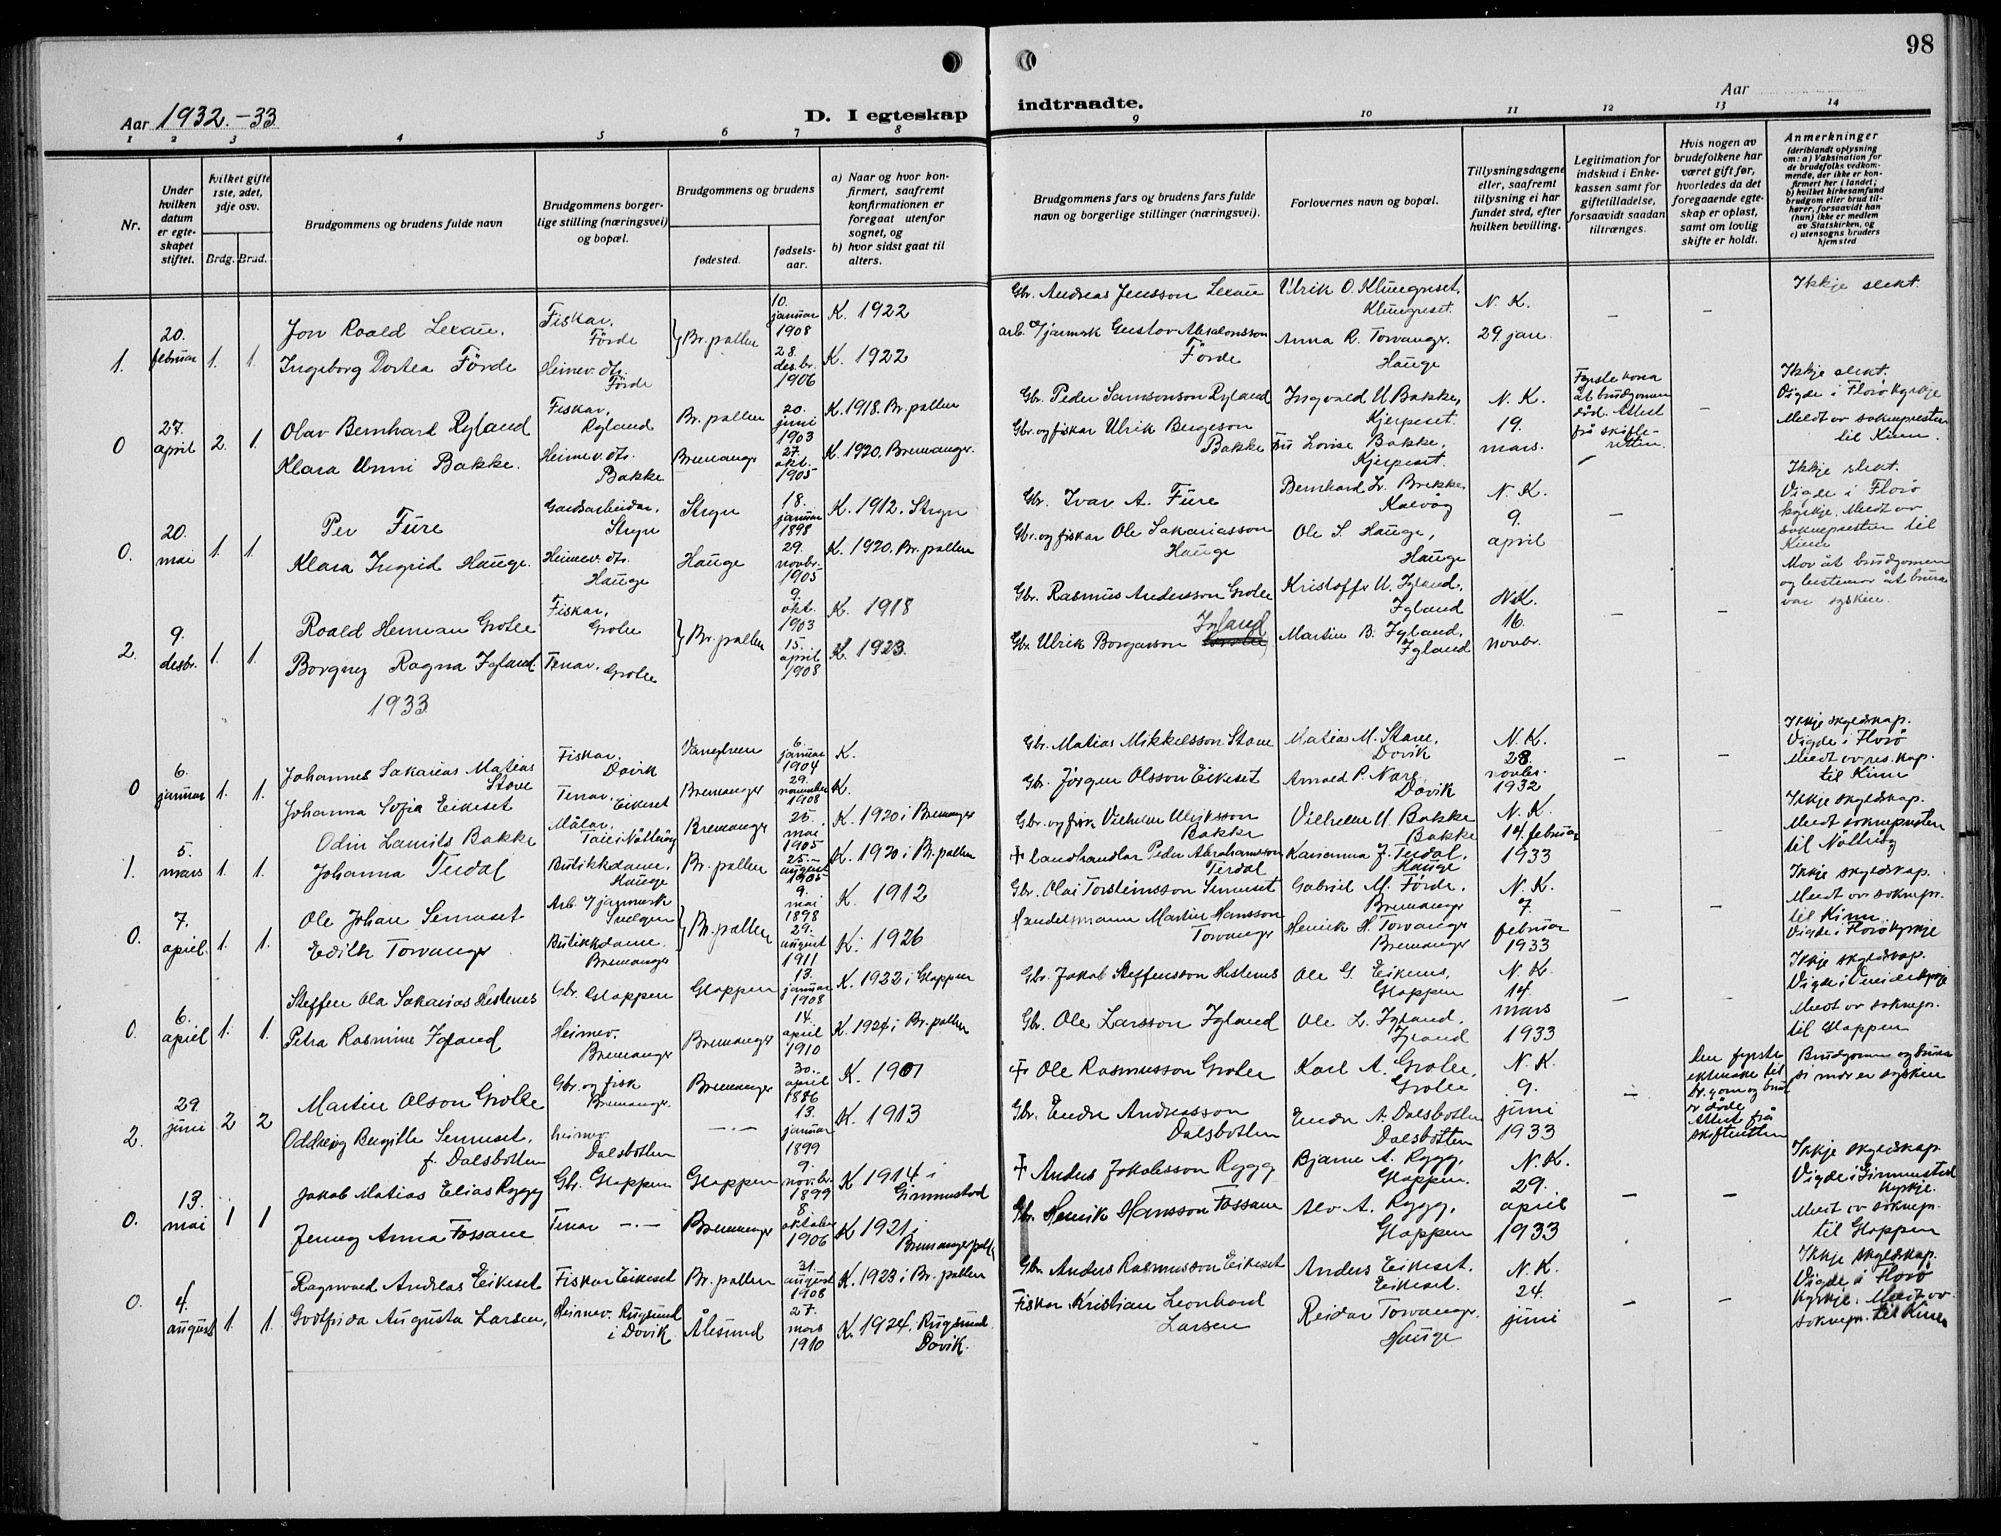 98
Aar 1932.-33.
D. I egteskap indtraadte.
Aar
1 2 3 4 5 6 7 8 9 10 11 12 13 14
Nr.
Under hvilken datum er egteskapet stiftet.
hvilket gifte 1ste, 2det, 3dje osv.
Brdg. Brud.
Brudgommens og brudens fulde navn
Brudgommens borgerlige stilling (næringsvei) og bopæl.
Brudgommens og brudens
fødested.
fødselsaar.
a) Naar og hvor konfirmert, saafremt konfirmationen er foregaat utenfor sognet, og
b) hvor sidst gaat til alters.
Brudgommens fars og brudens fars fulde navn og borgerlige stillinger (næringsvei).
Forlovernes navn og bopæl.
Tillysningsdagene eller, saafremt tillysning ei har fundet sted, efter hvilken bevilling.
Legitimation for indskud i Enkekassen samt for giftetilladelse, forsaavidt saadan tiltrænges.
Hvis nogen av brudefolkene har været gift før, hvorledes da det foregaaende egteskap er opløst, samt om lovlig skifte er holdt.
Anmerkninger
(deriblandt oplysning om: a) Vaksination for de brudefolks vedkommende, der ikke er konfirmert her i landet; b) hvilket kirkesamfund brudgom eller brud tilhører, forsaavidt han (hun) ikke er medlem av Statskirken, og c) utensogns bruders hjemsted
1. 20. februar 1. 1.
Jon Roald Lexau. Fiskar, Förde } Br. pollen 10. januar 1908 K. 1922 Gbr. Andreas Jensson Lexau Ulrik O. Klungreset, Klungreset. N. K. 29 jan. – – Ikkje slekt.
Ingeborg Dortea Förde Heimev. dtr. Förde 28. des.br. 1906 K. 1922 arb. v/jarnverk Gustav Absalonsson Förde Anna R. Torvanger Hauge
0 27. april 2. 1.
Olav Bernhard Ryland Fiskar, Ryland Br. pollen 20. juni 1903 K. 1918. Br. pollen Gbr. Peder Samsonson Ryland Ingvald U Bakke, Kjerpeset. N. K. 19. mars. Fyrste kona åt brudgomen död. Attest frå skifteretten. – Ikkje slekt. Vigde i Florö kyrkje Meldt av soknepresten til Kinn.
Klara Unni Bakke. Heimev. dtr. Bakke Bremanger 27. okt. 1905 K. 1920. Bremanger. Gbr. og fiskar Ulrik Bergeson Bakke Lovise Bakke, Kjerpeset.
0. 20. mai 1. 1.
Per Füre Gardsarbeidar, Stryn Stryn 18. januar 1898 K. 1912, Stryn Gbr. Ivar A. Füre Bernhard L. Brekke, Kalvåg N. K. 9. april – Ikkje slekt. Vigde i Florö kyrkje. Meldt av soknepresten til Kinn
Klara Ingrid Hauge. Heimev. dtr. Hauge Hauge 29. novbr. 1905 K. 1920. Br. pollen Gbr. og fiskar Ole Sakariasson Hauge Ole S. Hauge, Hauge
2. 9. desbr. 1. 1.
Roald Herman Grotle Fiskar, Grotle } Br. pollen 9. okt. 1903 K. 1918 Gbr. Rasmus Andersson Grotle Kristoffer U. Igland, Igland N.K. 16. novbr. – – Mor åt brudgomen og bestemor åt brura var sysken.
Borgny Ragna Igland Tenar, Grotle 15. april 1908 K. 1923. Gbr. Ulrik Borgarsson Igland Martin B. Igland, Igland
1933
0 6. januar 1. 1.
Johannes Sakarias Matias Stave Fiskar, Davik Vanylven 6. januar 1904 K. Gbr. Matias Mikkelsson Stave Matias M. Stave, Davik N. K. 28. novbr. 1932 – – Ikkje skyldskap. Vigde i Florö Meldt av res. kap. til Kinn
Johanna Sofia Eikeset Tenar, Eikeset Bremanger 29. november 1908 K. Gbr. Jörgen Olsson Eikeset Arnold P. Nare Davik
1. 5. mars 1. 1.
Odin Laurits Bakke Målar, Nötteröy Bremanger 25. mai 1905 K. 1920 i Bremanger Gbr. og fisk Vilhelm Ulriksson Bakke Vilhelm U. Bakke Bakke N. K. 14. februar 1933 Ikkje skyldskap. Meldt soknepresten til Nötteröy
Johanna Terdal Butikkdame. Hauge Br. pollen 25. august 1905 K. 1920 i Br. pollen + landhandlar Peder Abrahamsson Terdal Karianna J. Terdal. Hauge
0. 7. april. 1. 1.
Ole Johan Semeset. Arb. v/jarnverk Svelgen } Br. pollen 9. mai 1898 K. 1912 Gbr. Olai Torsteinsson Semeset Gabriel M. Förde. Bremanger N. K. 7. februar 1933 – – Ikkje skyldskap. Meldt av soknepr. til Kinn Vigde i Florö kyrkje
Edith Torvanger Butikkdame. Bremanger 29. august 1911 K. 1926 Handelsmann Martin Hansson Torvanger Henrik H. Torvanger Bremanger
0. 6. april 1. 1.
Steffen Ola Sakarias Hestenes Gbr. Gloppen Gloppen 13. januar 1908 K. 1922 i Gloppen Gbr. Jakob Steffensson Hestenes Ole G. Eikenes, Gloppen N. K. 14. mars 1933 – – Ikkje skyldskap. Vigde i Vereidekyrkje Meldt av soknepr. til Gloppen
Petra Rasmine Igland Heimev. Bremanger Bremanger 14. april 1910 K. 1924 i Br. pollen Gbr. Ole Larsson Igland Ole L. Igland, Igland
2. 29 juni 2 2
Martin Olson Grotle Gbr. og fisk Bremanger. Bremanger 30. april 1886 K. 1901 + Ole Rasmusson Grotle Karl A. Grotle, Grotle N. K. 9. juni 1933 – Den fyrste ektemake til br.gom og brud er döde Attest frå skifteretten Brudgomen og brura si mor er sysken
Oddbjög Birgitte Semeset, f. Dalsbotten heimev. Dalsbotten –·– 13. januar 1899 K. 1913 Gbr. Endre Andreasson Dalsbotten Endre A. Dalsbotten Dalsbotten
0. 13. mai 1 1
Jakob Matias Elias Rygg Gbr. Gloppen Gloppen 9. nov.br. 1899 K 1914 i Gimmestad + Anders Jakobsson Rygg Bjarne A. Rygg, Gloppen. N. K. 29. april 1933 – – Ikkje skyldskap Vigde i Gimmestad kyrkje. Meldt av soknepr. til Gloppen
Jenny Anna Fossane Tenar –·– Bremanger 8. oktober 1906 K 1921 i Bremangerpoll. Gbr. Henrik Hansson Fossane Alv A. Rygg, Gloppen
0. 4. august 1. 1.
Ragnvald Andreas Eikeset Fiskar Eikeset Br. pollen 31. august 1908 K. 1923 i Br. pollen Gbr. Anders Rasmusson Eikeset Anders Eikeset. Eikeset. N. K. 24. juni – – Ikkje skyldskap. Vigde i Florö kyrkje. Meldt av soknepr. til Kinn
Godtfrida Augusta Larsen, Heimev. Rugsund i Davik Ålesund 27. mars 1910 K. 1924. Rugsund Davik. Fiskar Kristian Leonhard Larsen Reidar Torvanger. Hauge